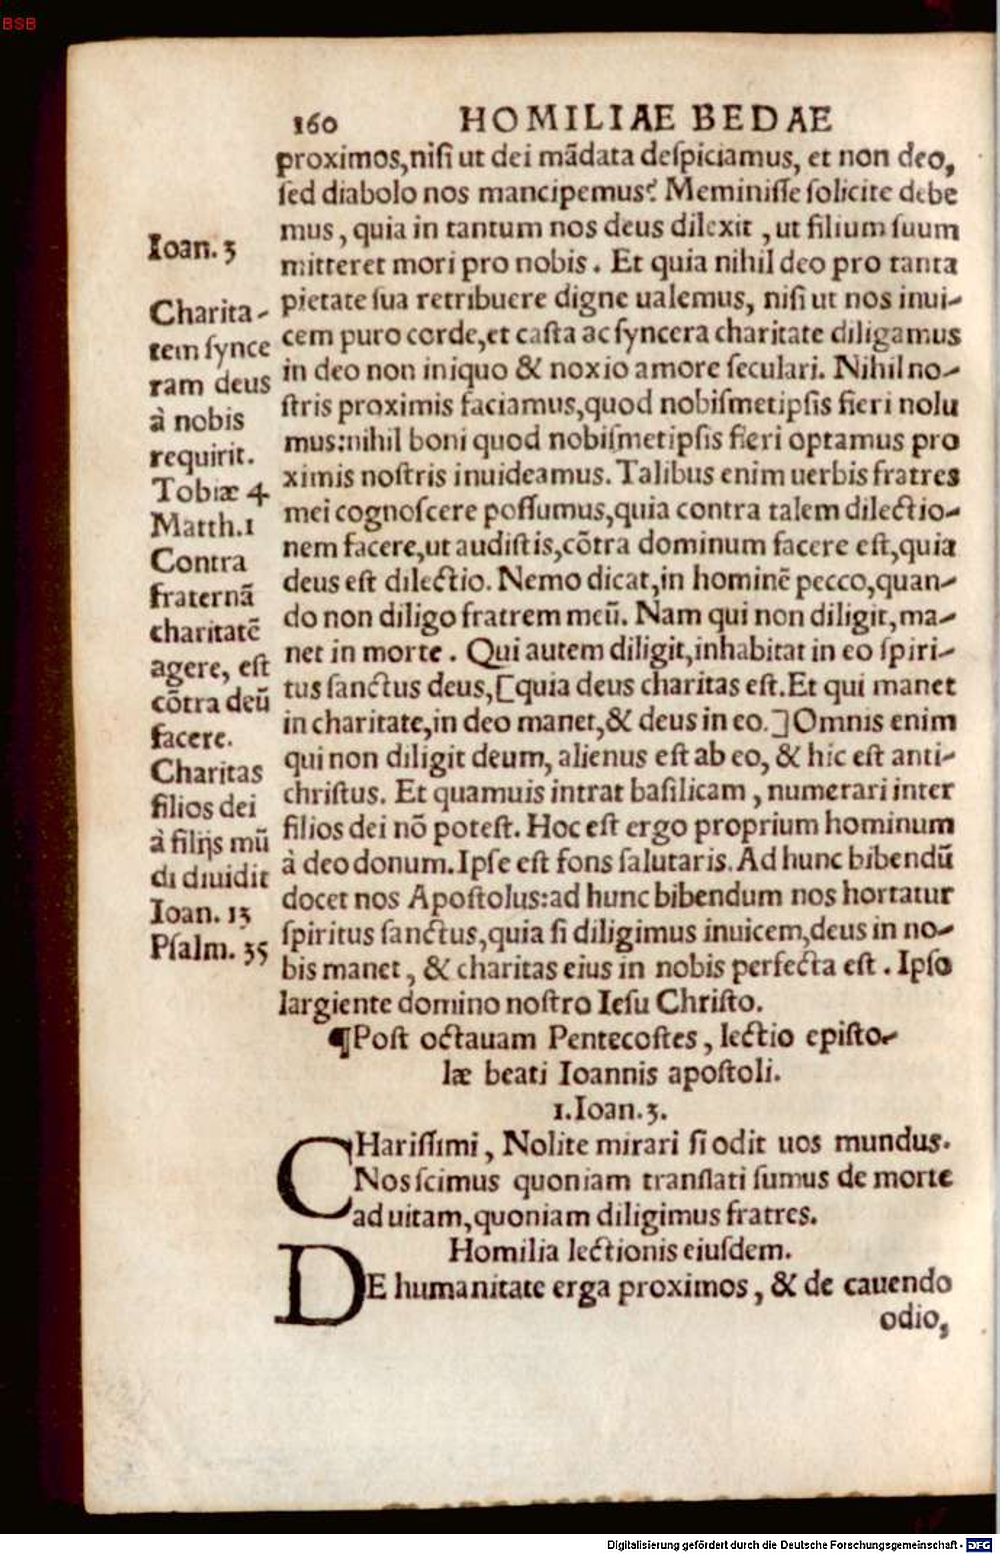 BSB
160 HOMILIAE BEDAE
proximos,nisi ut dei mādata despiciamus, et non deo,
sed diabolo nos mancipemus? Meminisse solicite debe
mus, quia in tantum nos deus dilexit, ut filium suum
mitteret mori pro nobis. Et quia nihil deo pro tanta
pietate sua retribuere digne ualemus, nisi ut nos inui-
cem puro corde,et casta ac syncera charitate diligamus
in deo non iniquo & noxio amore seculari. Nihil no-
stris proximis faciamus,quod nobismetipsis fieri nolu
mus:nihil boni quod nobismetipsis fieri optamus pro
ximis nostris inuideamus. Talibus enim uerbis fratres
mei cognoscere possumus,quia contra talem dilectio-
nem facere,ut audistis,cōtra dominum facere est,quia
deus est dilectio. Nemo dicat,in hominē pecco,quan-
do non diligo fratrem meū. Nam qui non diligit,ma-
net in morte. Qui autem diligit,inhabitat in eo spiri-
tus sanctus deus,[quia deus charitas est.Et qui manet
in charitate,in deo manet,& deus in eo.]Omnis enim
qui non diligit deum, alienus est ab eo, & hic est anti-
christus. Et quamuis intrat basilicam, numerari inter
filios dei nō potest. Hoc est ergo proprium hominum
à deo donum.Ipse est fons salutaris.Ad hunc bibendū
docet nos Apostolus:ad hunc bibendum nos hortatur
spiritus sanctus,quia si diligimus inuicem,deus in no-
bis manet, & charitas eius in nobis perfecta est. Ipso
largiente domino nostro Iesu Christo.
Ioan. 3
Charita-
tem synce
ram deus
à nobis
requirit.
Tobiæ 4
Matth.1
Contra
fraternā
charitatē
agere, est
cōtra deū
facere.
Charitas
filios dei
à filijs mū
di diuidit
Ioan. 13
Psalm. 35
¶Post octauam Pentecostes, lectio episto-
læ beati Ioannis apostoli.
1.Ioan.3.
CHarissimi, Nolite mirari si odit uos mundus.
Nos scimus quoniam translati sumus de morte
ad uitam,quoniam diligimus fratres.
Homilia lectionis eiusdem.
DE humanitate erga proximos, & de cauendo
odio,
Digitalisierung gefördert durch die Deutsche Forschungsgemeinschaft - DFG